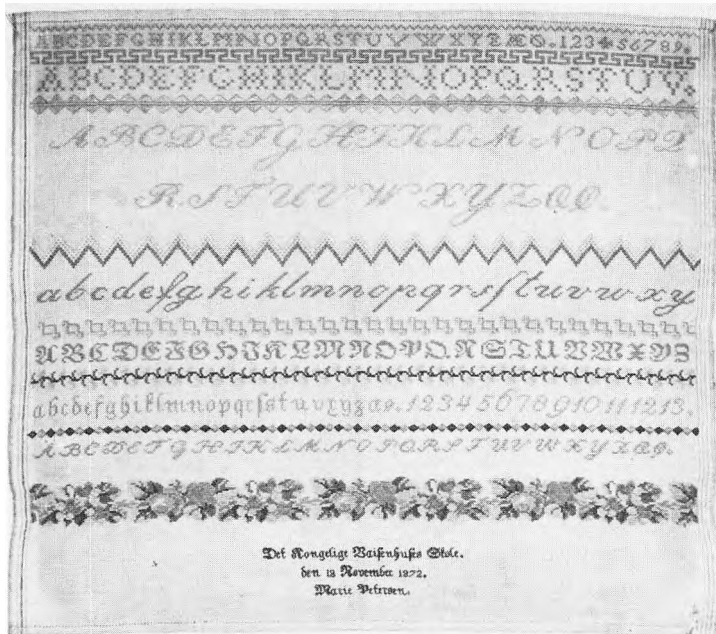 ABCDEFGHIKLMNOPQRSTUVWXYZÆØ.123456789.
ABCDEFGHIKLMNOPQRSTUV.
ABCDEFGHIKLMNOPQ
RSTUVWXYZÆØ.
abcdefghiklmnopqrsſtuvwxy
ABCDEFGHIKLMNOPQRSTUVWXYZ
abcdefghiklmnopqrſstuvxyzæø.12345678910111213.
ABCDEFGHIKLMNOPQRSTUVWXYZÆØ.
Det Kongelige Vaiſenhuſes Skole.
den 18 November 1872.
Marie Peterſen.